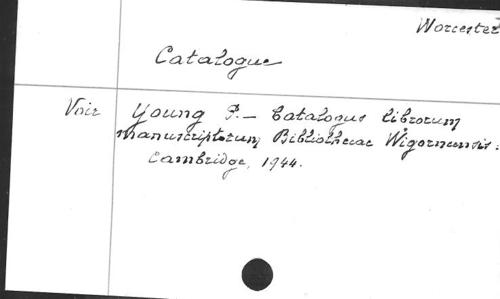 Worcester
Catalogue
Voir Young P. — Catalogus librorum
manuscriptorum Bibliothecae Wigornensis.
Cambridge, 1944.